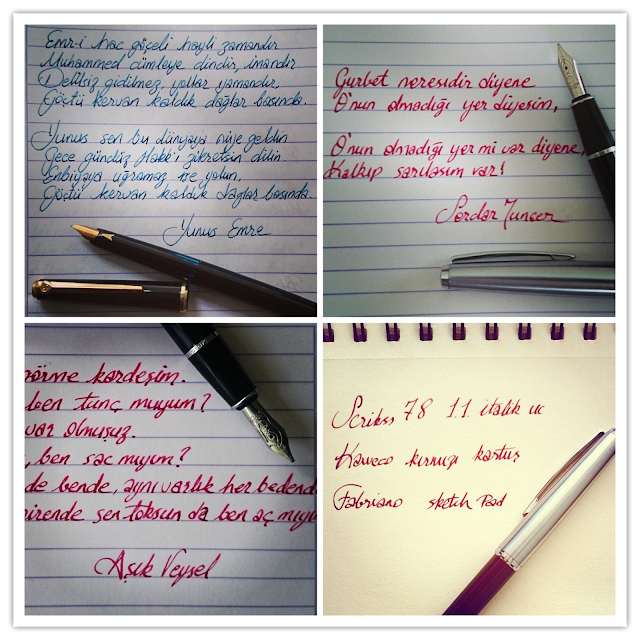 Emr-i hac göçeli hayli zamandır
Muhammed cümleye dindir, imandır
Delilsiz gidilmez, yollar yamandır
Göçtü kervan kaldık dağlar başında.
Yunus sen bu dünyaya niye geldin
Gece gündüz Hakk'ı zikretsin dilin
Enbiyaya uğramaz ise yolun.
Göçtü kervan kaldık dağlar başında.
Yunus Emre
Gurbet neresidir diyene
O'nun olmadığı yer diyesim,
O'nun olmadığı yer mi var diyene,
Kalkıp sarılasım var!
Serdar Tuncer
görme kardeşim.
ben tunç muyum?
var olmuşuz.
, ben sac mıyım?
de bende, aynı varlık her bedende
girende sen toksun da ben aç mıyım
Aşık Veysel
Scrikss 78 1.1 italik uc
Kaweco kırmızı kartuş
Fabriano sketch Pad